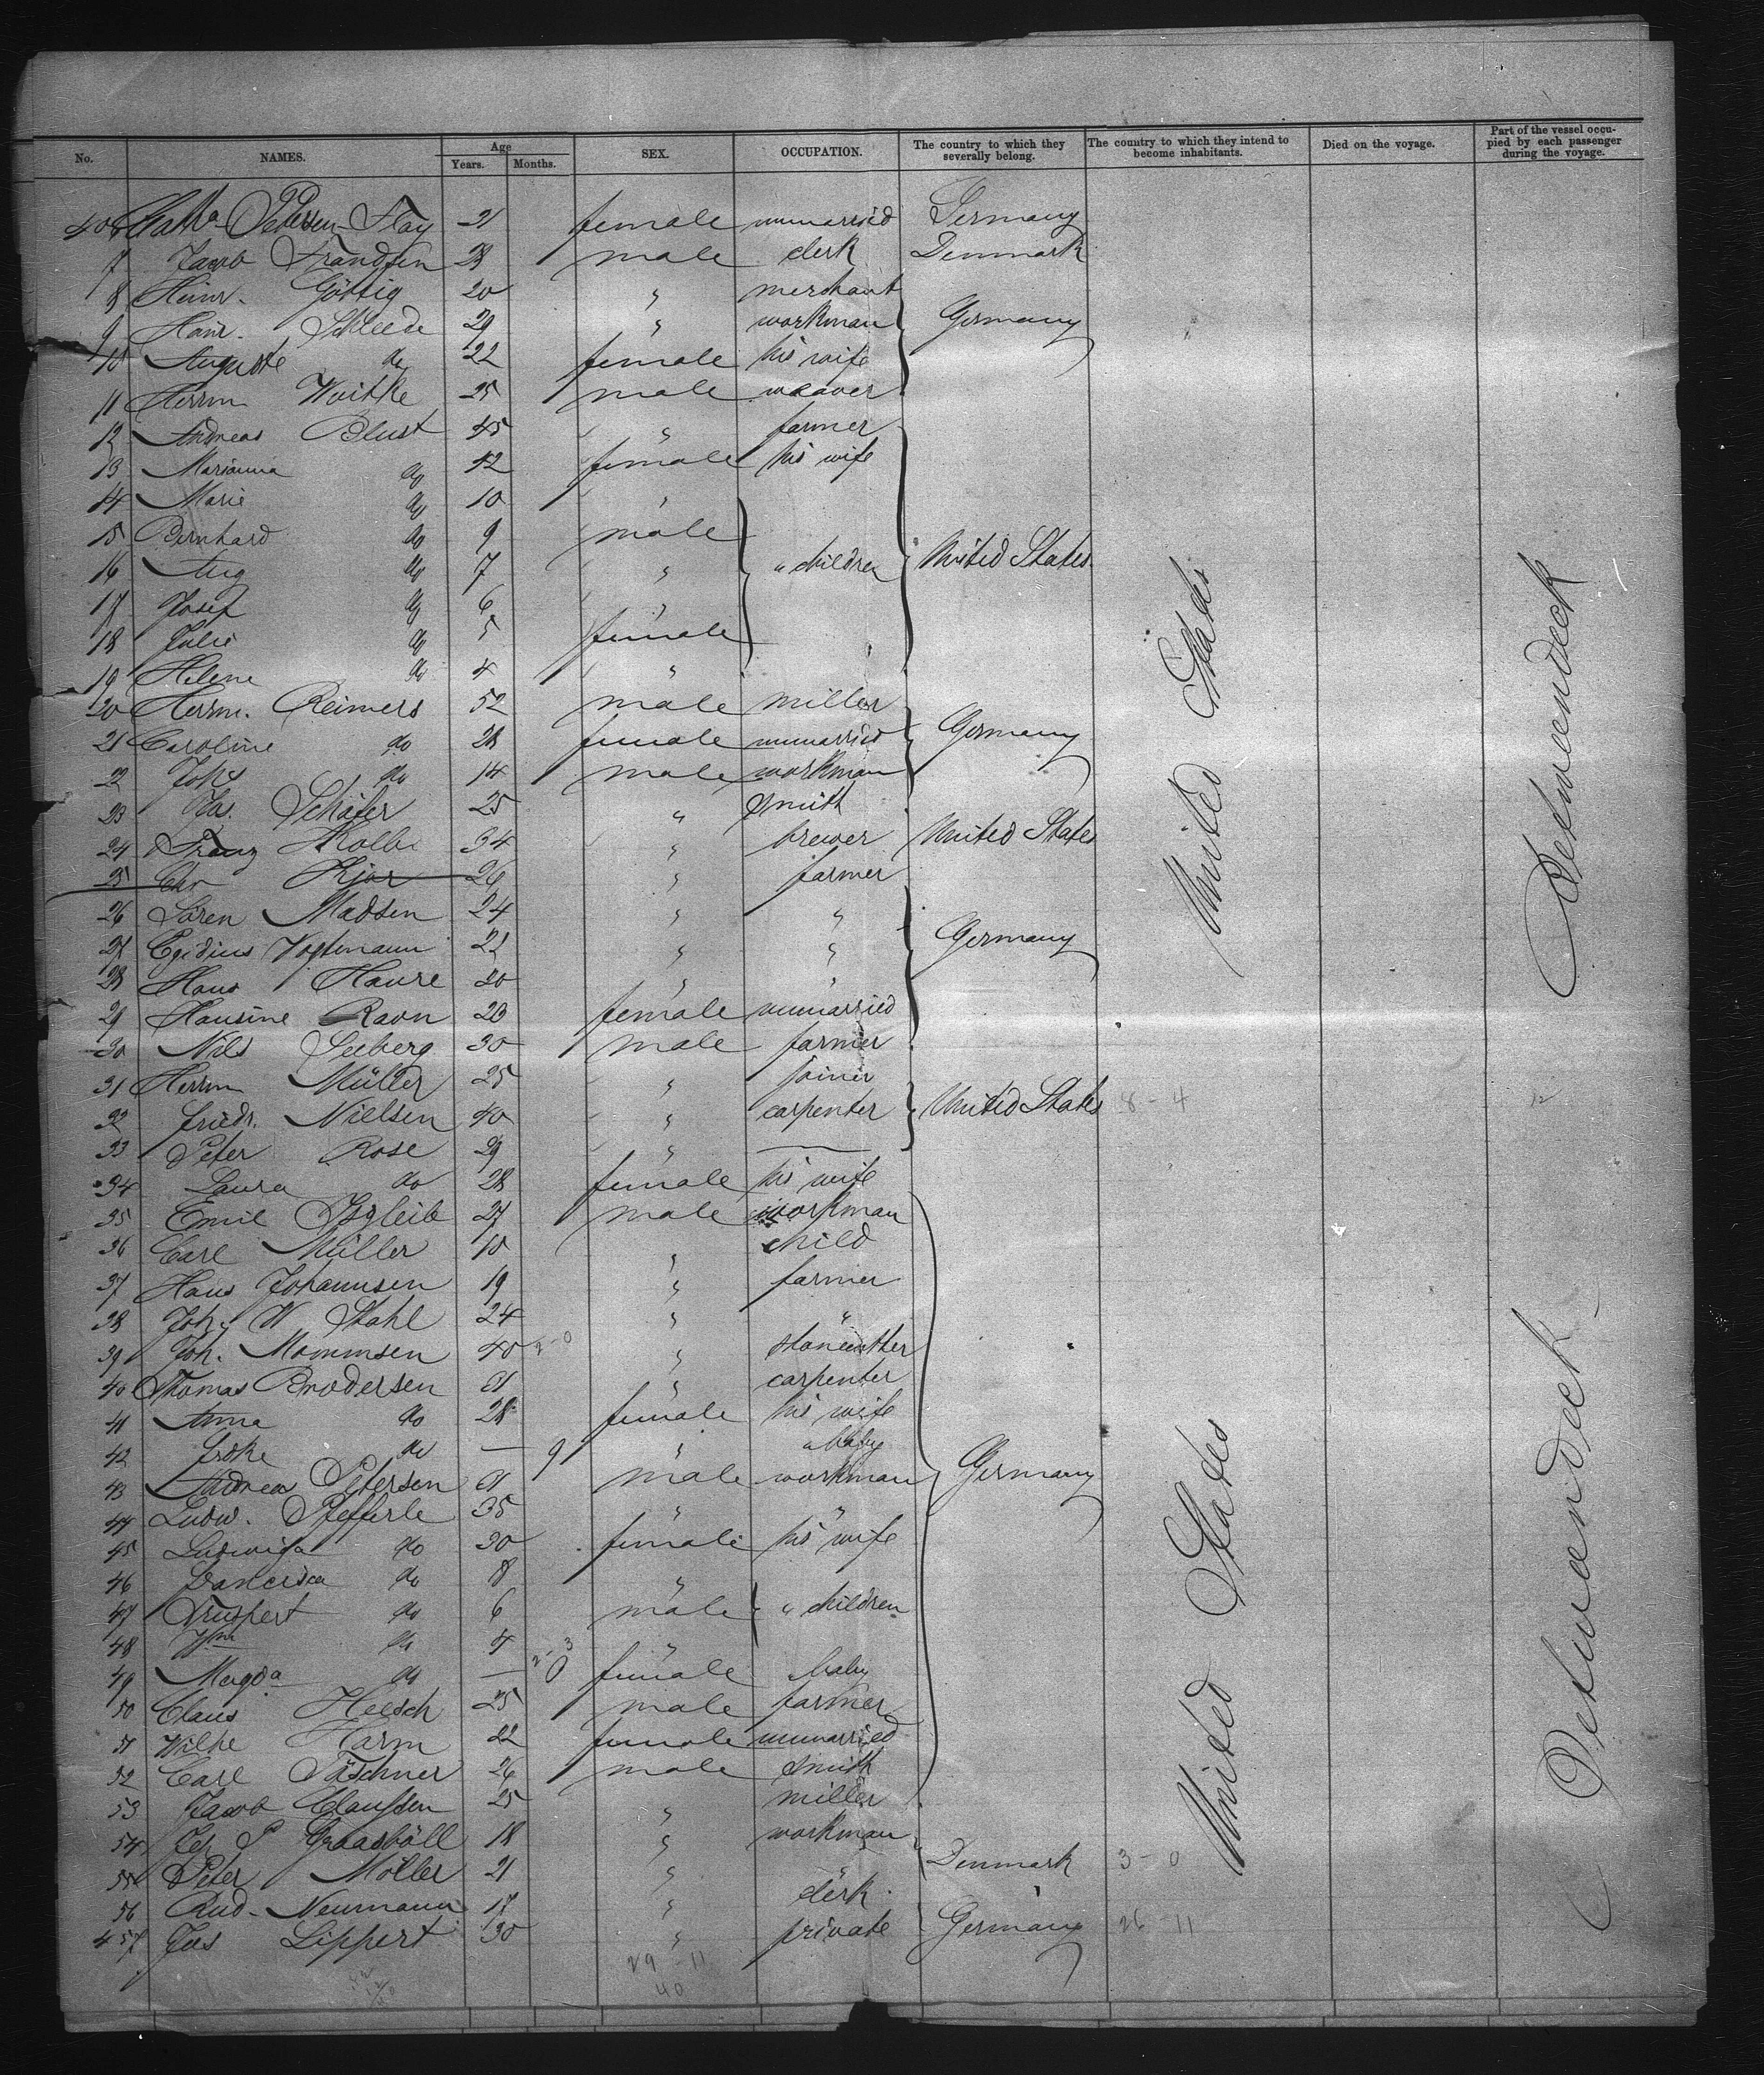 No. NAMES. Age Years. Months. SEX. OCCUPATION. The country to which they severally belong. The country to which they intend to become inhabitants. Died on the voyage. Part of the vessel occupied by each passenger during the voyage.
406 Petersen 21 female unmarried Germany
7 Jacob Frandsen 28 male clerk Denmark
8 Heinr. Göttig 20 " merchant
9 Heinr. Schleede 29 " workman Germany
10 Auguste do 22 female his wife
11 Herrm Woitke 25 male weaver
12 Andreas Blust 45 " farmer
13 Marianna do 42 female his wife
14 Marie do 10 "
15 Bernhard do 9 male
16 Aug do 7 " " children United States
17 Josef do 6 "
18 Julie do 5 female
19 Helene do 4 "
20 Herrm. Reimers 52 male miller
21 Caroline do 28 female unmarried Germany
22 Johs do 14 male workman
23 Schäfer 25 " smith
24 Franz Kolbe 34 " brewer United States
25 Chr Kjar 26 " farmer
26 Sören Madsen 24 " "
27 Egidius 22 " " Germany
28 Hans Haure 20 " "
29 Hansine Ravn 20 female unmarried
30 Nils Seeberg 30 male farmer
31 Herrm Müller 25 " joiner
32 Friedr. Nielsen 40 " carpenter United States 8 - 4
33 Peter Rose 29 " —
34 Laura do 28 female his wife
35 Emil Isgleib 27 male workman
36 Carl Müller 10 " child
37 Hans Johannsen 19 " farmer
38 Joh. W Stahl 24 " "
39 Joh. Mommsen 40 " stonecutter
40 Thomas Brodersen 21 " carpenter
41 Anna do 28 female his wife
42 Frdke do — 9 " " baby
43 Andrea Petersen 21 male workman Germany
44 Ludw. Pfefferle 35 " "
45 Ludwiga do 30 female his wife
46 do 8 "
47 Truspert do 6 male " children
48 Wm do 4 "
49 Magda do — female baby
50 Claus Heesch 25 male farmer
51 Wilhe Harm 22 female unmarried
52 Carl Täschner 26 male smith
53 Jacob Claussen 25 " miller
54 Jep P Graasböll 18 " workman
55 Peter Möller 21 " " Denmark 3 - 0
56 Rud. Neumann 17 " clerk
457 Jos Lippert 30 " private Germany 26 - 11
29 - 11
40
United States
United States
Betweendeck
Betweendeck